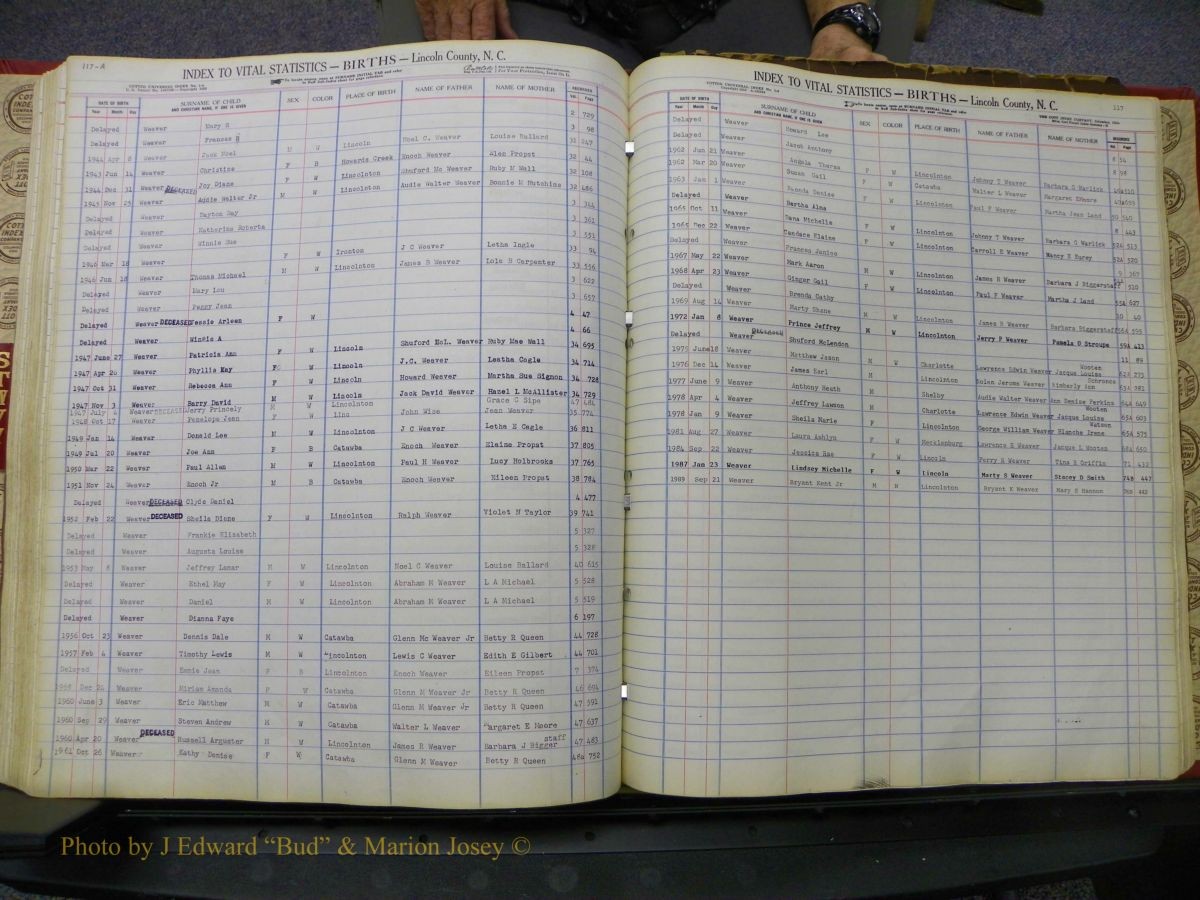 117-A
INDEX TO VITAL STATISTICS — BIRTHS — Lincoln County, N. C.
DATE OF BIRTH SURNAME OF CHILD AND CHRISTIAN NAME, IF ONE IS GIVEN SEX COLOR PLACE OF BIRTH NAME OF FATHER NAME OF MOTHER RECORDED
Year Month Day Vol. Page
2 729
Delayed Weaver Mary S 3 98
Delayed Weaver Frances H
1944 Apr 8 Weaver Jack Noel M W Lincoln Noel C. Weaver Louise Ballard 31 247
1943 Jun 14 Weaver Christine F B Howards Creek Enoch Weaver Alen Propst 32 44
1944 Dec 31 Weaver DECEASED Joy Diane F W Lincolnton Shuford Mc Weaver Ruby M Wall 32 108
1945 Nov 25 Weaver Audie Walter Jr M W Lincolnton Audie Walter Weaver Bonnie M Hutchins 32 486
Delayed Weaver Dayton Ray 3 314
Delayed Weaver Katherine Roberta 3 361
Delayed Weaver Winnie Sue 3 551
1946 Mar 18 Weaver F W Ironton J C Weaver Letha Ingle 33 94
1946 Jun 18 Weaver Thomas Michael M W Lincolnton James B Weaver Lois B Carpenter 33 556
Delayed Weaver Mary Lou 3 622
Delayed Weaver Peggy Jean 3 657
Delayed Weaver DECEASED Jessie Arleen F W 4 47
Delayed Weaver Winkis A 4 66
1947 June 27 Weaver Patricia Ann F W Lincoln Shuford McL. Weaver Ruby Mae Wall 34 695
1947 Apr 20 Weaver Phyllis Kay F W Lincoln J.C. Weaver Leatha Cagle 34 714
1947 Oct 31 Weaver Rebecca Ann F W Lincoln Howard Weaver Martha Sue Sigmon 34 728
1947 Nov 3 Weaver Barry David M W Lincoln Jack David Weaver Hazel L McAllister 34 729
1947 July 4 Weaver DECEASED Jerry Princely M W Lincolnton Grace G Sipe 47 484
1948 Oct 17 Weaver Penelope Jean F W Linc John Wise Jean Weaver 35 774
1949 Jan 14 Weaver Donald Lee M W Lincolnton J C Weaver Letha E Cagle 36 811
1949 Jul 20 Weaver Joe Ann F B Catawba Enoch Weaver Elaine Propst 37 805
1950 Mar 22 Weaver Paul Allen M W Lincolnton Paul H Weaver Lucy Holbrooks 37 765
1951 Nov 24 Weaver Enoch Jr M B Catawba Enoch Weaver Eileen Propst 38 784
Delayed Weaver DECEASED Clyde Daniel 4 477
1952 Feb 22 Weaver DECEASED Sheila Diane F W Lincolnton Ralph Weaver Violet N Taylor 39 741
Delayed Weaver Frankie Elizabeth 5 327
Delayed Weaver Augusta Louise 5 328
1953 May 8 Weaver Jeffrey Lamar M W Lincolnton Noel C Weaver Louise Ballard 40 615
Delayed Weaver Ethel May F W Lincolnton Abraham M Weaver L A Michael 5 528
Delayed Weaver Daniel M W Lincolnton Abraham M Weaver L A Michael 5 519
Delayed Weaver Dianna Faye 6 197
1956 Oct 23 Weaver Dennis Dale M W Catawba Glenn Mc Weaver Jr Betty R Queen 44 728
1957 Feb 4 Weaver Timothy Lewis M W Lincolnton Lewis C Weaver Edith E Gilbert 44 701
Delayed Weaver Essie Jean F B Lincolnton Enoch Weaver Eileen Propst 7 374
1958 Dec 24 Weaver Miriam Amanda F W Catawba Glenn M Weaver Jr Betty R Queen 46 694
1960 June 3 Weaver Eric Matthew M W Catawba Glenn M Weaver Jr Betty R Queen 47 591
1960 Sep 29 Weaver Steven Andrew M W Catawba Walter L Weaver Margaret E Moore 47 637
1960 Apr 20 Weaver DECEASED Russell Arguster M W Lincolnton James R Weaver Barbara J Biggerstaff 47 483
1961 Oct 26 Weaver Kathy Denise F W Catawba Glenn M Weaver Betty R Queen 48a 752
INDEX TO VITAL STATISTICS — BIRTHS — Lincoln County, N. C.
117
DATE OF BIRTH SURNAME OF CHILD AND CHRISTIAN NAME, IF ONE IS GIVEN SEX COLOR PLACE OF BIRTH NAME OF FATHER NAME OF MOTHER RECORDED
Year Month Day Vol. Page
Delayed Weaver Howard Lee 8 54
Delayed Weaver Jacob Anthony 8 98
1962 Jun 21 Weaver Angela Theresa F W Lincolnton Johnny T Weaver Barbara G Warlick
1962 Mar 20 Weaver Susan Gail F W Catawba Walter L Weaver Margaret EMoore
1963 Jan 1 Weaver Wanda Denise F W Lincolnton Paul F Weaver Martha Jean Land 50 540
Delayed Weaver Bertha Alma 8 443
1965 Oct 11 Weaver Dana Michelle F W Lincolnton Johnny T Weaver Barbara G Warlick 52A 513
1965 Dec 22 Weaver Candace Elaine F W Lincolnton Carroll E Weaver Nancy R Hurey 52A 520
Delayed Weaver Frances Janice 9 367
1967 May 22 Weaver Mark Aaron M W Lincolnton James R Weaver Barbara J Biggerstaff 510
1968 Apr 23 Weaver Ginger Gail F W Lincolnton Paul F Weaver Martha J Land 55A 627
Delayed Weaver Brenda Cathy 10 40
1969 Aug 14 Weaver Marty Shane M W Lincolnton James R Weaver Barbara Biggerstaff 56A 595
1972 Jan 8 Weaver Prince Jeffrey M W Lincolnton Jerry P Weaver Pamela O Stroupe 59A 413
Delayed Weaver DECEASED Shuford McLendon 11 89
1975 June 18 Weaver Matthew Jason M W Charlotte Lawrence Edwin Weaver Jacque Louise Wooten 62A 273
1976 Dec 14 Weaver James Karl M Lincolnton Bolen Jerome Weaver Kimberly Ann Schronce 63A 581
1977 June 9 Weaver Anthony Heath M Shelby Audie Walter Weaver Ann Denise Perkins 64A 649
1978 Apr 4 Weaver Jeffrey Lawson M Charlotte Lawrence Edwin Weaver Jacque Louise Wooten 65A 603
1978 Jan 9 Weaver Sheila Marie F Lincolnton George William Weaver Blanche Irene Watson 65A 575
1981 Aug 27 Weaver Laura Ashlyn F W Mecklenburg Lawrence E Weaver Jacque L Wooten 68A 650
1984 Sep 22 Weaver Jessica Rae F W Lincoln Perry R Weaver Tina R Griffin 71 432
1987 Jan 23 Weaver Lindsey Michelle F W Lincoln Marty S Weaver Stacey D Smith 74B 447
1989 Sep 21 Weaver Bryant Kent Jr M W Lincolnton Bryant K Weaver Mary S Hannon 76B 442
Photo by J Edward “Bud” & Marion Josey ©